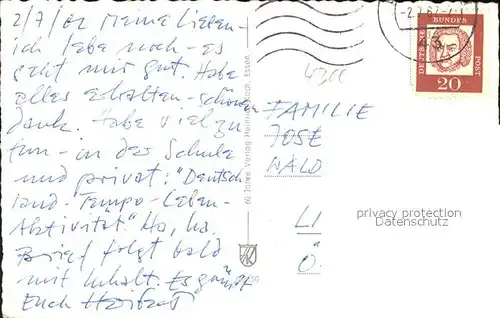 2/7/62 Meine Lieben -
ich lebe noch - es
geht mir gut. Habe
alles erhalten - schönen
dank. Habe viel zu
tun - in der Schule
und privat: "Deutsch
land - Tempo - Leben -
Aktivität" Ha, ha.
Brief folgt bald
mit Inhalt. Es grüßt
Euch
60 Jahre Verlag Essen
DEUTSCHE BUNDES POST
20
FAMILIE
JOSE
WALD
LI
Ö
privacy protection
Datenschutz